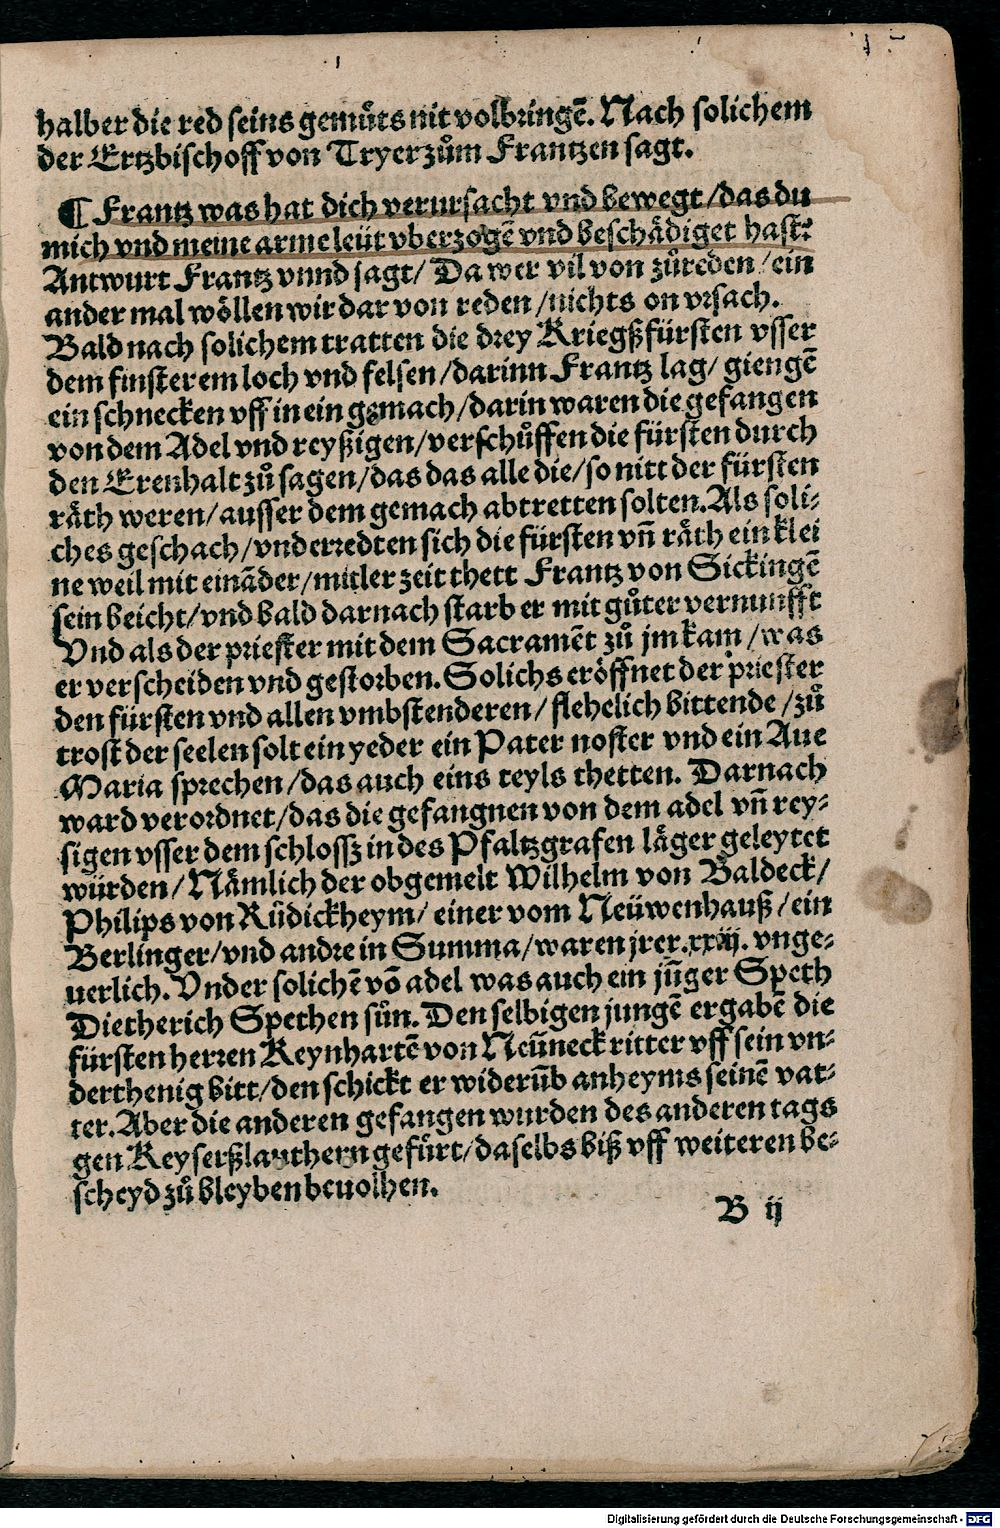 halber die red seins gemuͤts nit volbringẽ. Nach solichem
der Ertzbischoff von Tryer zuͦm Frantzen sagt.
¶ Frantz was hat dich verursacht vnd bewegt/das du
mich vnd meine arme leüt vberzogẽ vnd beschådiget hast:
Antwurt Frantz vnnd sagt/ Da wer vil von zuͦreden/ein
ander mal wöllen wir dar von reden/nichts on vrsach.
Bald nach solichem tratten die drey Kriegßfürsten vsser
dem finsterem loch vnd felsen/darinn Frantz lag/ giengẽ
ein schnecken vff in ein gemach/darin waren die gefangen
von dem Adel vnd reyßigen/verschuͦffen die fürsten durch
den Erenhalt zuͦ sagen/das das alle die/so nitt der fürsten
råth weren/ausser dem gemach abtretten solten. Als soli-
ches geschach/vnd erredten sich die fürsten vñ råth ein klei
ne weil mit einãder/mitler zeit thett Frantz von Sickingẽ
sein beicht/vnd bald darnach starb er mit guͦter vernunfft
Vnd als der priester mit dem Sacramẽt zuͦ jm kam/was
er verscheiden vnd gestorben. Solichs eröffnet der priester
den fürsten vnd allen vmbstenderen/ flehelich bittende/zuͦ
trost der seelen solt ein yeder ein Pater noster vnd ein Aue
Maria sprechen/das auch eins teyls thetten. Darnach
ward verordnet/das die gefangnen von dem adel vñ rey-
sigen vsser dem schlossz in des Pfaltzgrafen låger geleytet
würden/Nåmlich der obgemelt Wilhelm von Baldeck/
Philips von Rüdickheym/ einer vom Neüwenhauß/ein
Berlinger/vnd andre in Summa/waren jrer.xxiij. vnge-
uerlich. Vnder solichẽ võ adel was auch ein jũger Speth
Dietherich Spethen suͦn. Den selbigen jungẽ ergabẽ die
fürsten herren Reynhartẽ von Neüneck ritter vff sein vn-
derthenig bitt/den schickt er widerũb anheyms seinẽ vat-
ter. Aber die anderen gefangen wurden des anderen tags
gen Keyserßlauthern gefuͤrt/daselbs biß vff weiteren be-
scheyd zuͦ bleyben beuolhen.
B ij
Digitalisierung gefördert durch die Deutsche Forschungsgemeinschaft - DFG